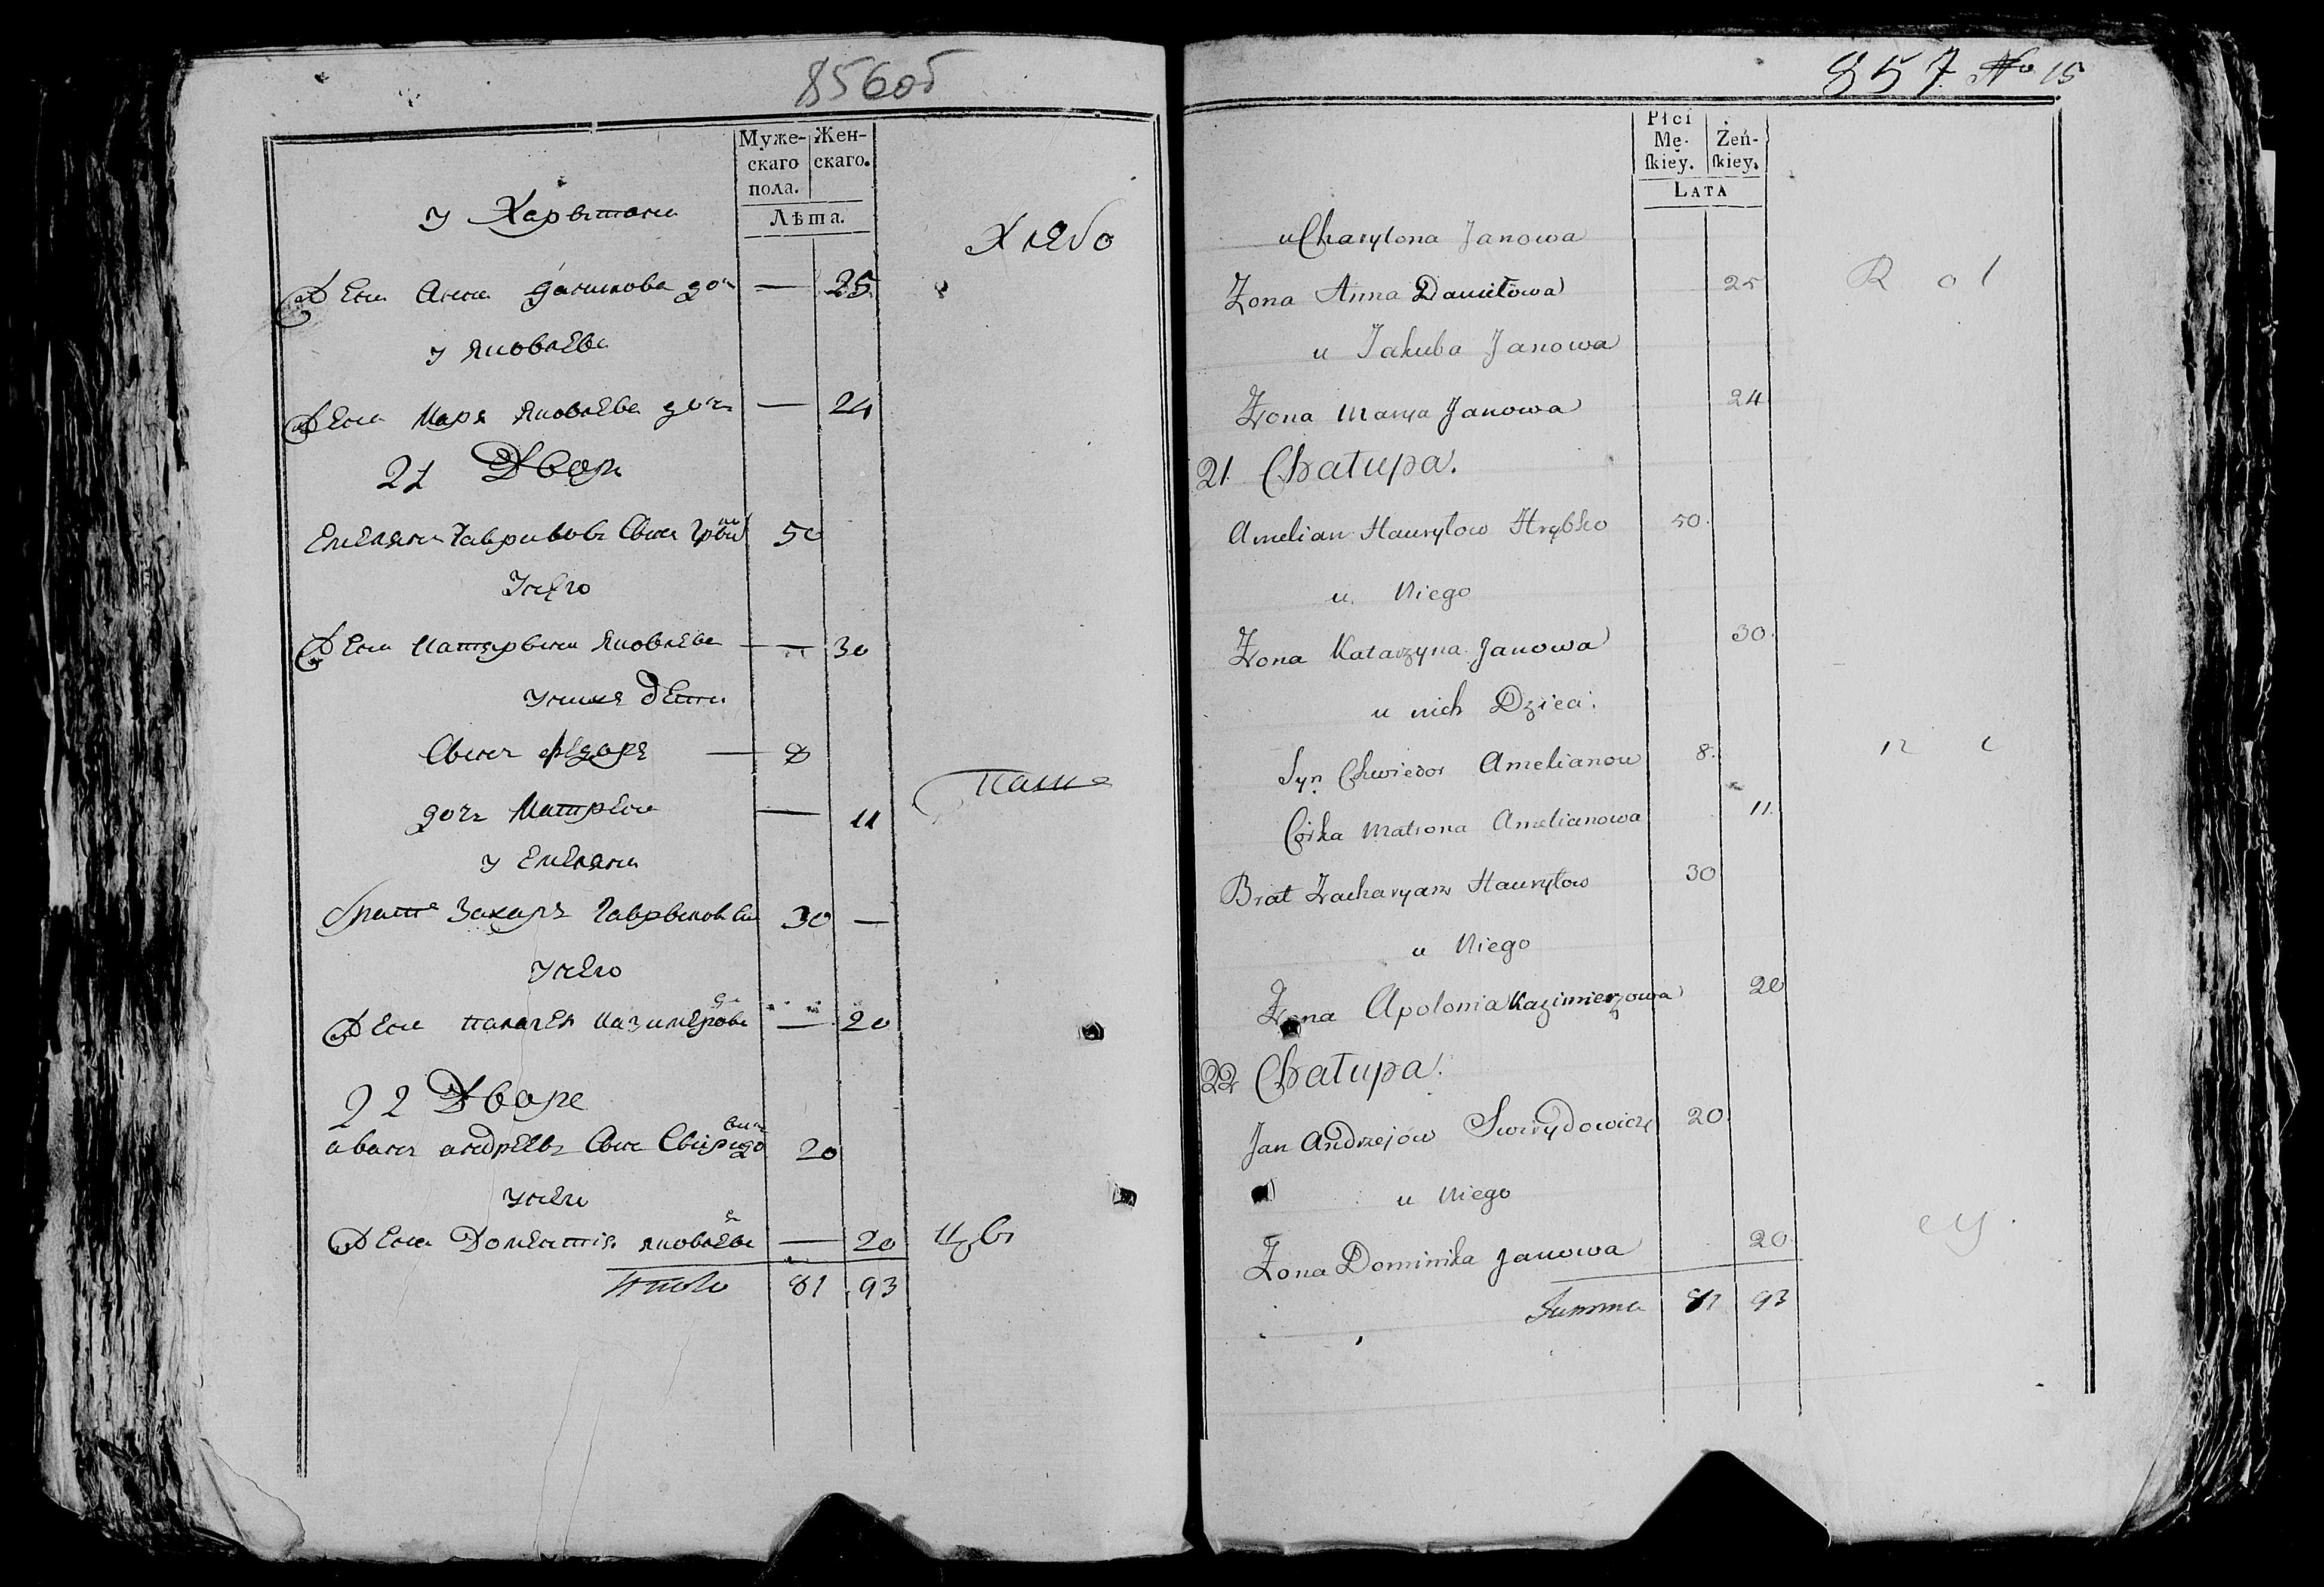 856об
Муже-
скаго
пола.
Жен-
скаго.
Лѣта.
у Харытона
Хлебо
Жена Анна данилова доч — 25
у Яковлева
Жена Маря Яковлева доч — 24
21 Дворъ
Емелянъ Гаврыловъ Сынъ 50
Унего
Жена Катерына Яковлева — 30
уних дети
Сынъ Федоръ — 8
дочъ Матрена — 11
Паш
у Емеляна
братъ Захаръ Гаврыловъ 30 —
унего
Жена Палагея Казимерова — 20
22 Дворъ
иванъ андреевъ Сынъ Свиридо
вич 20
унего
Жена Домнития яковлева — 20
Итого 81 93
857 No 15
Płci
Mę-
ſkiey.
Żeń-
ſkiey.
LATA
u Charytona Janowa
Żona Anna Daniłowa 25
R o l
u Jakuba Janowa
Żona Marya Janowa 24
21 Chałupa.
Amelian Hauryłow Hrybko 50.
u Niego
Żona Katarzyna Janowa 30.
u nich Dzieci:
Syn Chwiedor Amelianow 8.
n i
Córka Matrona Amelianowa 11.
Brat Zacharyasz Hauryłow 30
u Niego
Żona Apolonia Kazimierzowa 20
22 Chałupa.
Jan Andrzejów Swirydowicz 20.
u Niego
cy.
Żona Dominika Janowa 20.
Summa 81 93